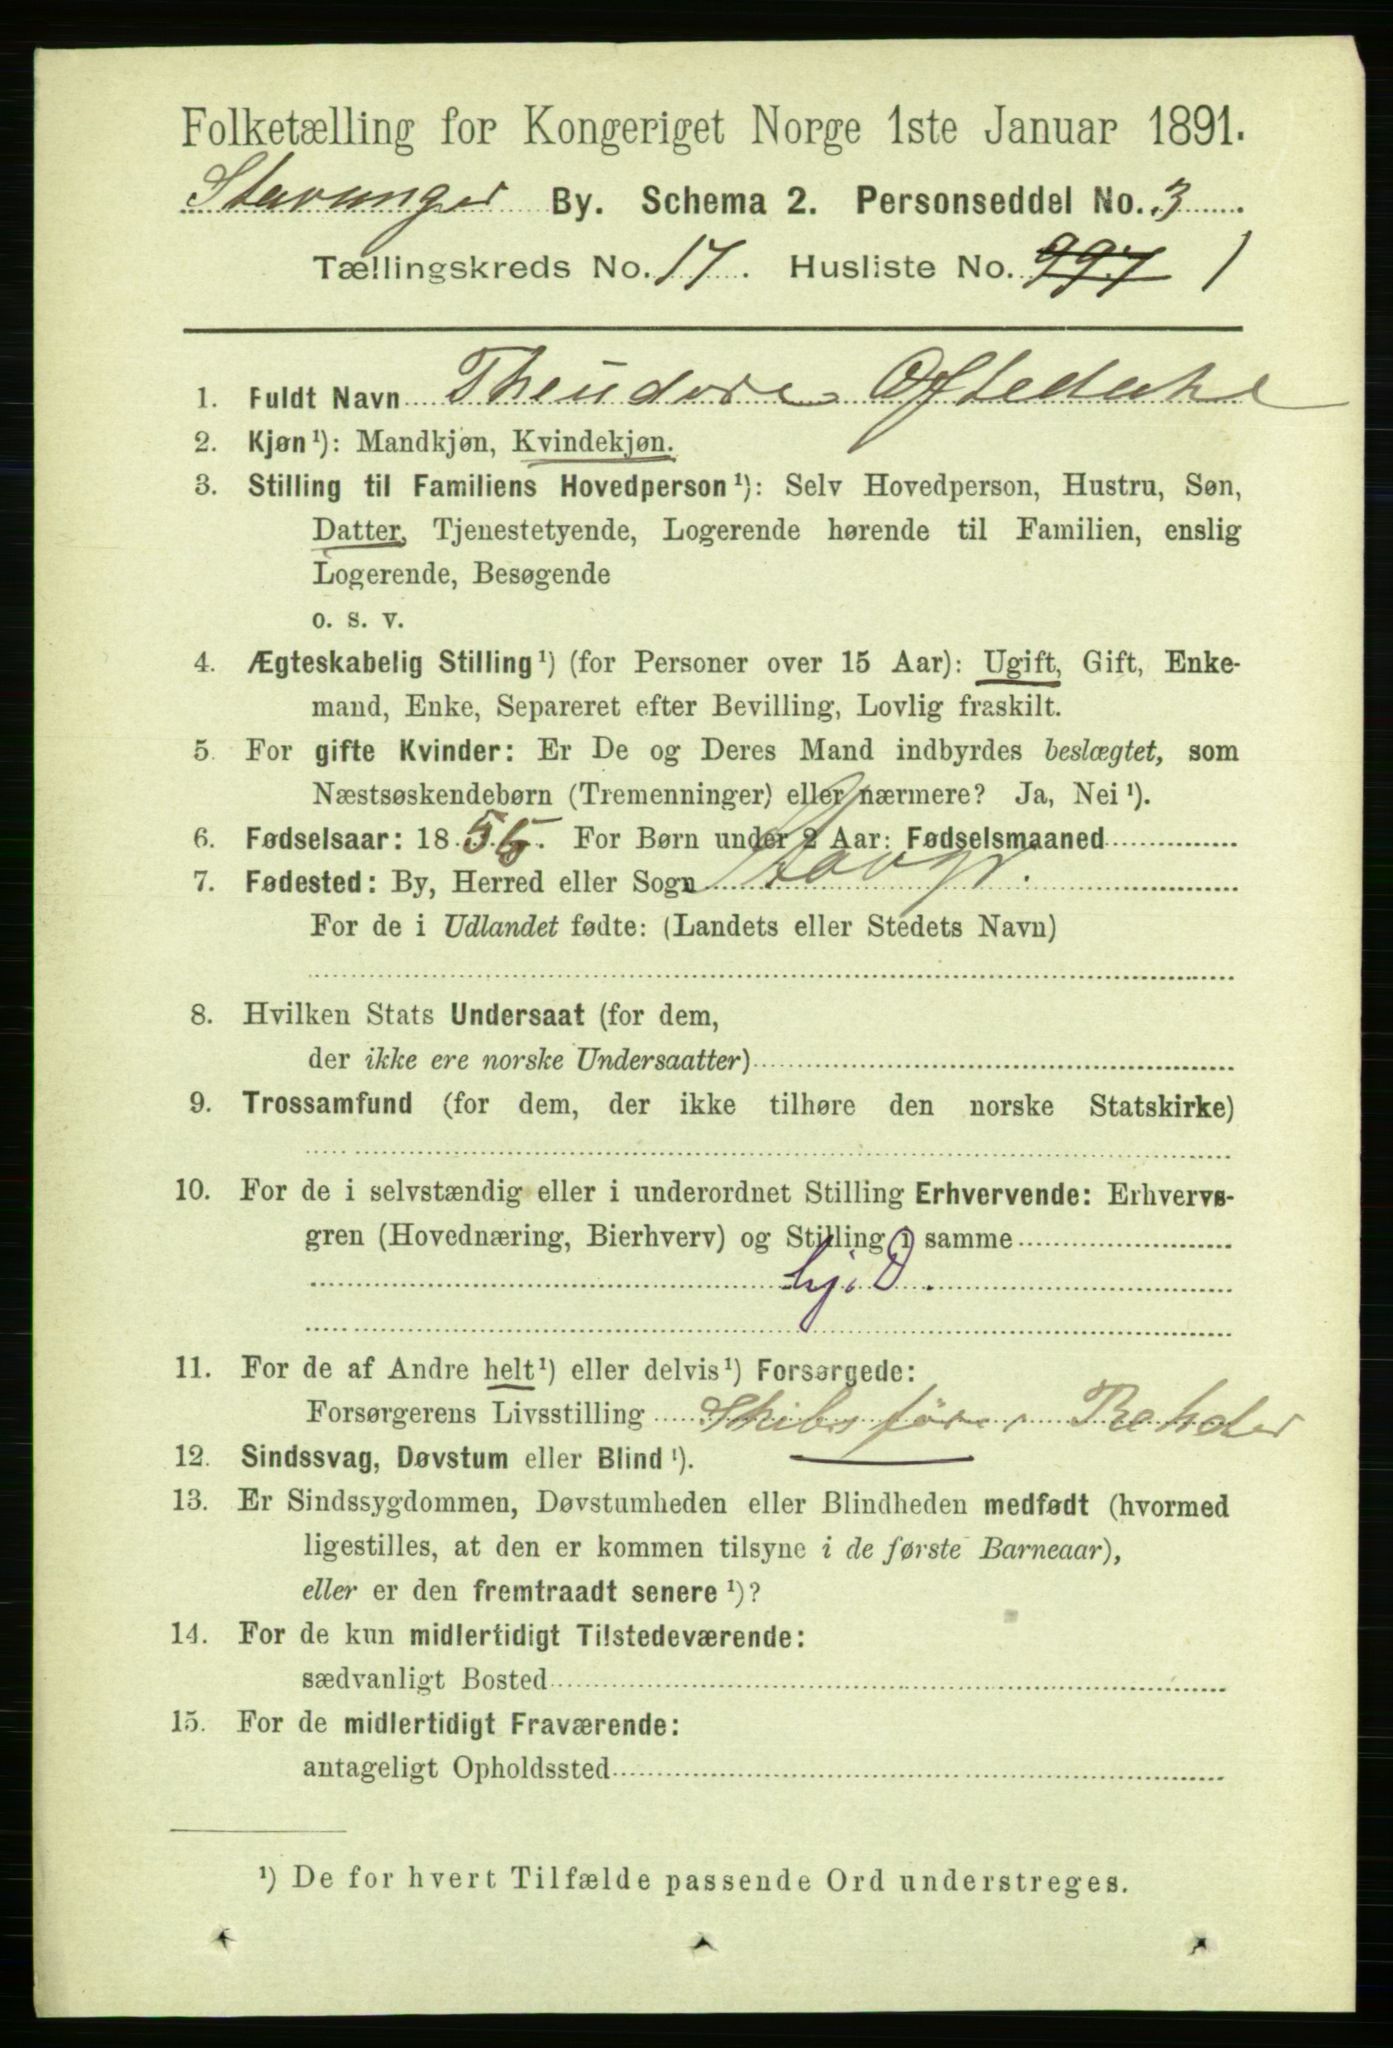 Folketælling for Kongeriget Norge 1ste Januar 1891.
Stavanger By. Schema 2. Personseddel No. 3
Tællingskreds No. 17. Husliste No. 997 1
1. Fuldt Navn Theudora Oftedahl
2. Kjøn¹): Mandkjøn, Kvindekjøn.
3. Stilling til Familiens Hovedperson¹): Selv Hovedperson, Hustru, Søn,
Datter, Tjenestetyende, Logerende hørende til Familien, enslig
Logerende, Besøgende
o. s. v.
4. Ægteskabelig Stilling¹) (for Personer over 15 Aar): Ugift, Gift, Enke-
mand, Enke, Separeret efter Bevilling, Lovlig fraskilt.
5. For gifte Kvinder: Er De og Deres Mand indbyrdes beslægtet, som
Næstsøskendebørn (Tremenninger) eller nærmere? Ja, Nei¹).
6. Fødselsaar: 1855. For Børn under 2 Aar: Fødselsmaaned
7. Fødested: By, Herred eller Sogn Stavgr.
For de i Udlandet fødte: (Landets eller Stedets Navn)
8. Hvilken Stats Undersaat (for dem,
der ikke ere norske Undersaatter)
9. Trossamfund (for dem, der ikke tilhøre den norske Statskirke)
10. For de i selvstændig eller i underordnet Stilling Erhvervende: Erhvervs-
gren (Hovednæring, Bierhverv) og Stilling i samme
hj. D.
11. For de af Andre helt¹) eller delvis¹) Forsørgede:
Forsørgerens Livsstilling Skibsfører
12. Sindssvag, Døvstum eller Blind¹).
13. Er Sindssygdommen, Døvstumheden eller Blindheden medfødt (hvormed
ligestilles, at den er kommen tilsyne i de første Barneaar),
eller er den fremtraadt senere¹)?
14. For de kun midlertidigt Tilstedeværende:
sædvanligt Bosted
15. For de midlertidigt Fraværende:
antageligt Opholdssted
¹) De for hvert Tilfælde passende Ord understreges.